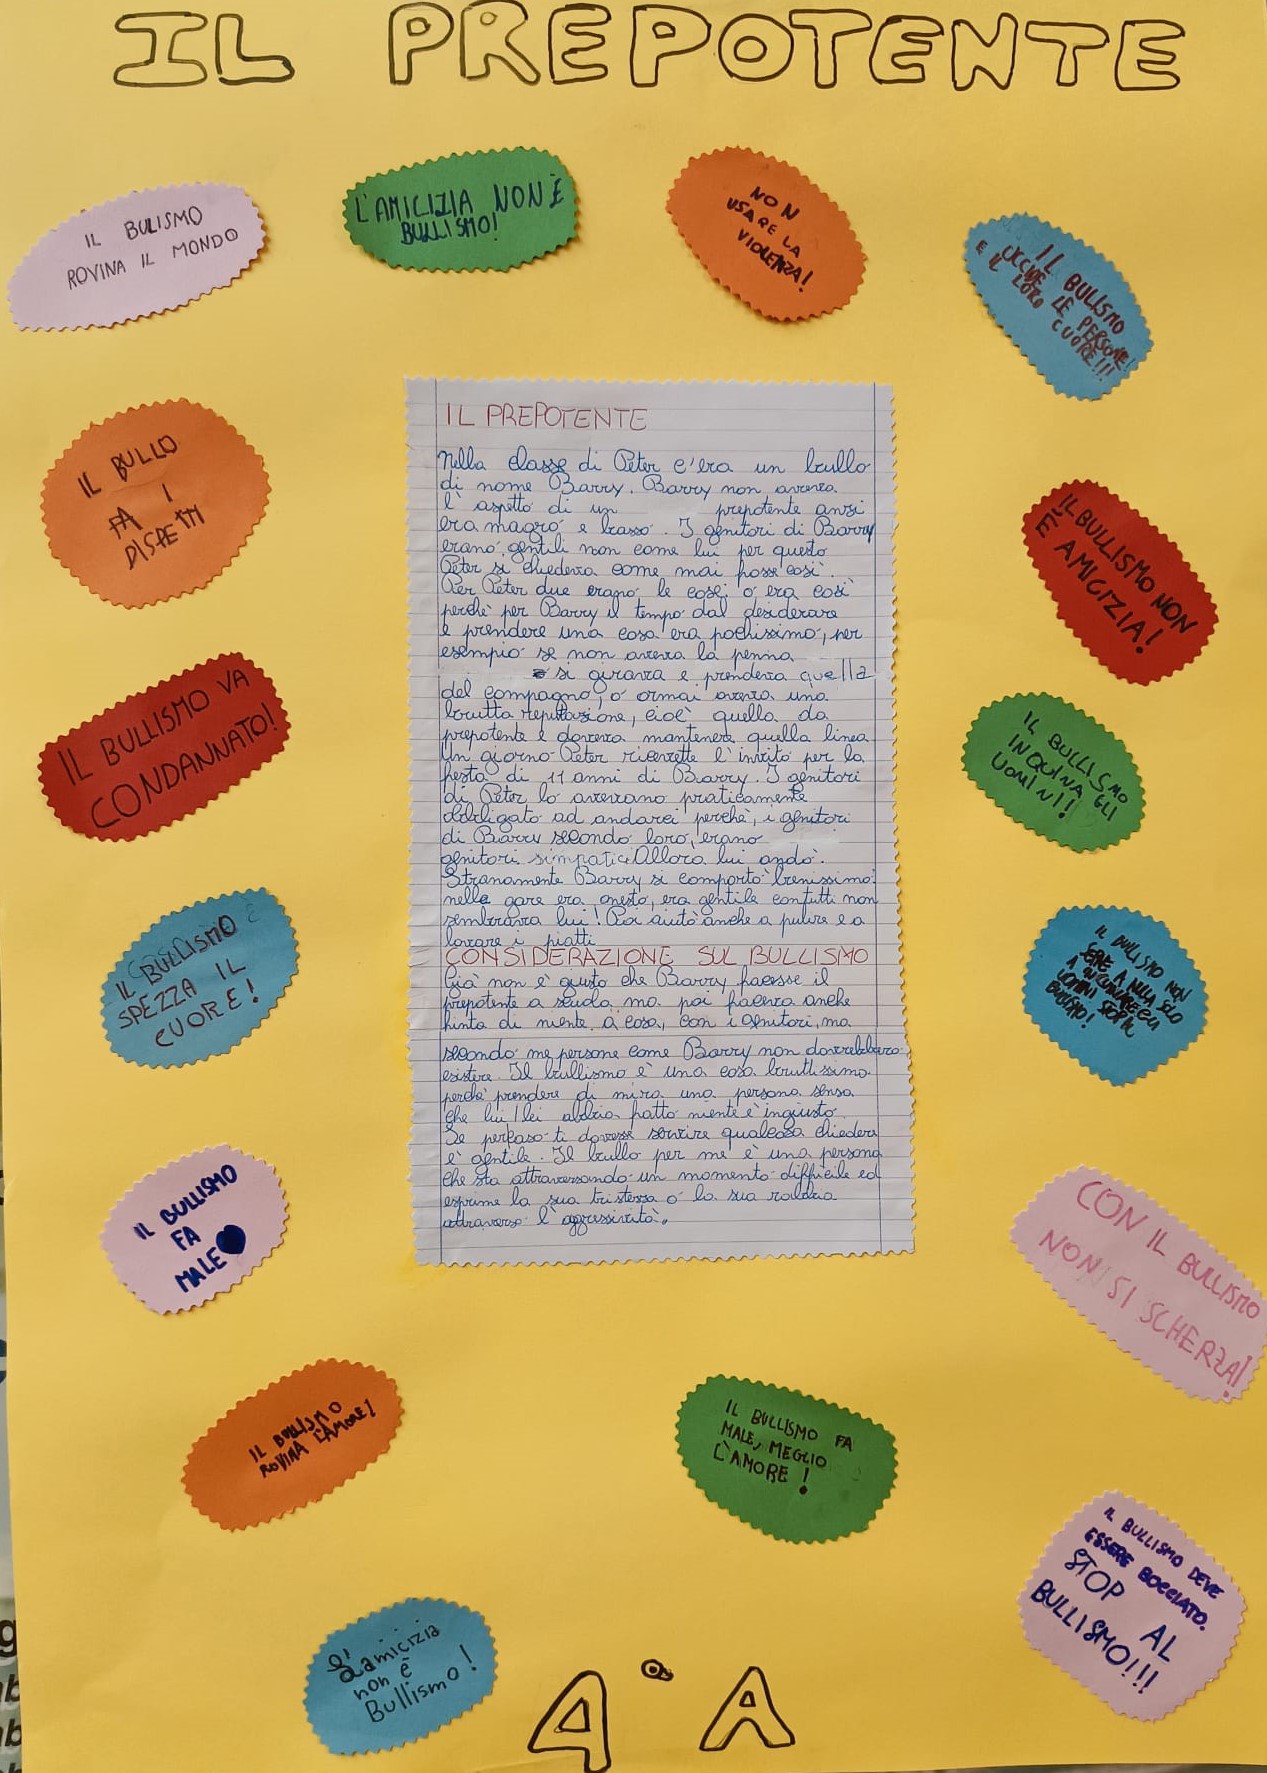 IL PREPOTENTE
IL BULISMO
ROVINA IL MONDO
L'AMICIZIA NON È
BULLISMO!
NON
USARE LA
VIOLENZA!
IL BULISMO
UCCIDE LE PERSONE
E IL LORO CUORE!!!
IL BULLO
FA I
DISPETTI
IL BULLISMO NON
È AMICIZIA!
IL BULLISMO VA
CONDANNATO!
IL BULLISMO
INQUINA GLI
UOMINI!
IL BULLISMO
SPEZZA IL
CUORE!
IL BULLISMO NON
SERE A NULLA SOLO
A
UOMINI
BULISMO!
IL BULLISMO
FA
MALE
CON IL BULLISMO
NON SI SCHERZA!
IL BULLISMO
ROVINA L'AMORE!
IL BULLISMO FA
MALE, MEGLIO
L'AMORE!
IL BULLISMO DEVE
ESSERE BOCCIATO.
STOP AL
BULLISMO!!!
L'amicizia
non è
Bullismo!
IL PREPOTENTE
Nella classe di Peter c'era un bullo
di nome Barry. Barry non aveva
l'aspetto di un prepotente anzi
era magro e basso. I genitori di Barry
erano gentili non come lui per questo
Peter si chiedeva come mai fosse così.
Per Peter due erano le cose: o era così
perchè per Barry il tempo dal desiderare
e prendere una cosa era pochissimo, per
esempio se non aveva la penna
si girava e prendeva quella
del compagno, o ormai aveva una
brutta reputazione, cioè quella da
prepotente e doveva mantenere quella linea
Un giorno Peter ricevette l'invito per la
festa di 11 anni di Barry. I genitori
di Peter lo avevano praticamente
obbligato ad andarci perchè, i genitori
di Barry secondo loro, erano
genitori simpatici. Allora lui andò.
Stranamente Barry si comportò benissimo:
nelle gare era onesto, era gentile con tutti non
sembrava lui! Poi aiutò anche a pulire e a
lavare i piatti
CONSIDERAZIONE SUL BULLISMO
Già non è giusto che Barry facesse il
prepotente a scuola, ma poi faceva anche
finta di niente a casa, con i genitori, ma
secondo me persone come Barry non dovrebbero
esistere. Il bullismo è una cosa bruttissima
perchè prendere di mira una persona senza
che lui/lei abbia fatto niente è ingiusto.
Se percaso ti dovesse servire qualcosa chiedere
è gentile. Il bullo per me è una persona
che sta attraversando un momento difficile ed
esprime la sua tristezza o la sua rabbia
attraverso l'aggressività.
4ª A